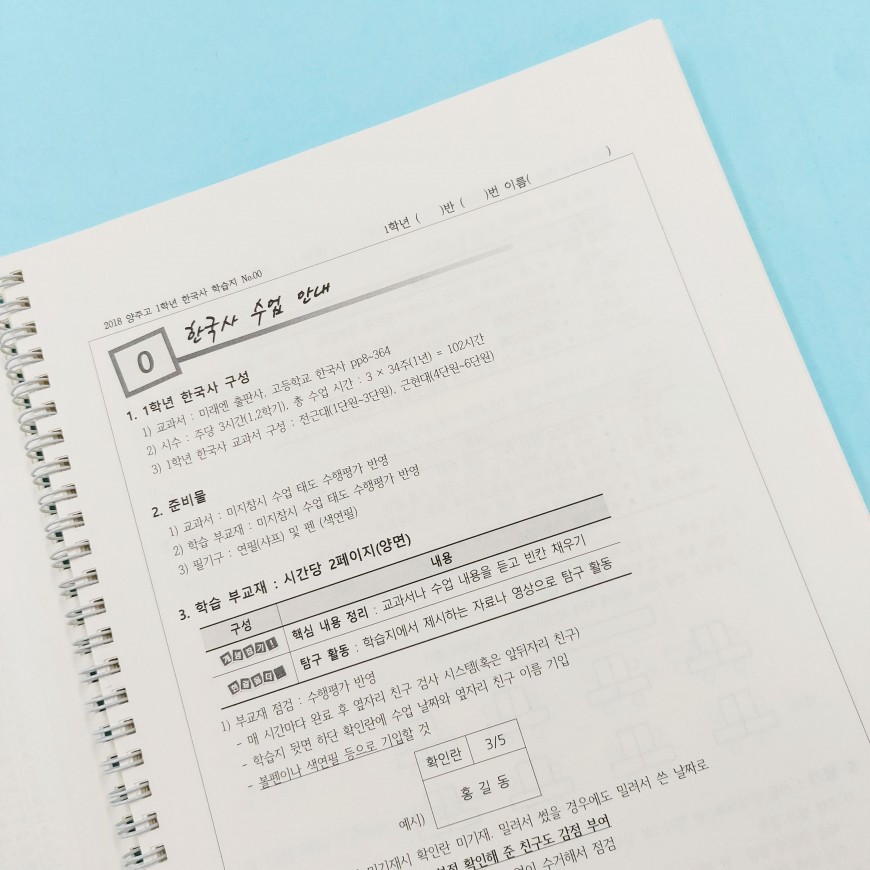 1학년 ( )반 ( )번 이름( )
2018 양주고 1학년 한국사 학습지 No.00
0 한국사 수업 안내
1. 1학년 한국사 구성
1) 교과서 : 미래엔 출판사, 고등학교 한국사 pp8-364
2) 시수 : 주당 3시간(1,2학기), 총 수업 시간 : 3 × 34주(1년) = 102시간
3) 1학년 한국사 교과서 구성 : 전근대(1단원~3단원), 근현대(4단원~6단원)
2. 준비물
1) 교과서 : 미지참시 수업 태도 수행평가 반영
2) 학습 부교재 : 미지참시 수업 태도 수행평가 반영
3) 필기구 : 연필(샤프) 및 펜 (색연필)
3. 학습 부교재 : 시간당 2페이지(양면)
구성 내용
개념잡기! 핵심 내용 정리 : 교과서나 수업 내용을 듣고 빈칸 채우기
탐구 활동 : 학습지에서 제시하는 자료나 영상으로 탐구 활동
1) 부교재 점검 : 수행평가 반영
- 매 시간마다 완료 후 옆자리 친구 검사 시스템(혹은 앞뒤자리 친구)
- 학습지 뒷면 하단 확인란에 수업 날짜와 옆자리 친구 이름 기입
- 볼펜이나 색연필 등으로 기입할 것
확인란 3/5
예시) 홍 길 동
미기재시 확인란 미기재. 밀려서 썼을 경우에도 밀려서 쓴 날짜로
확인해 준 친구도 감점 부여
수거해서 점검